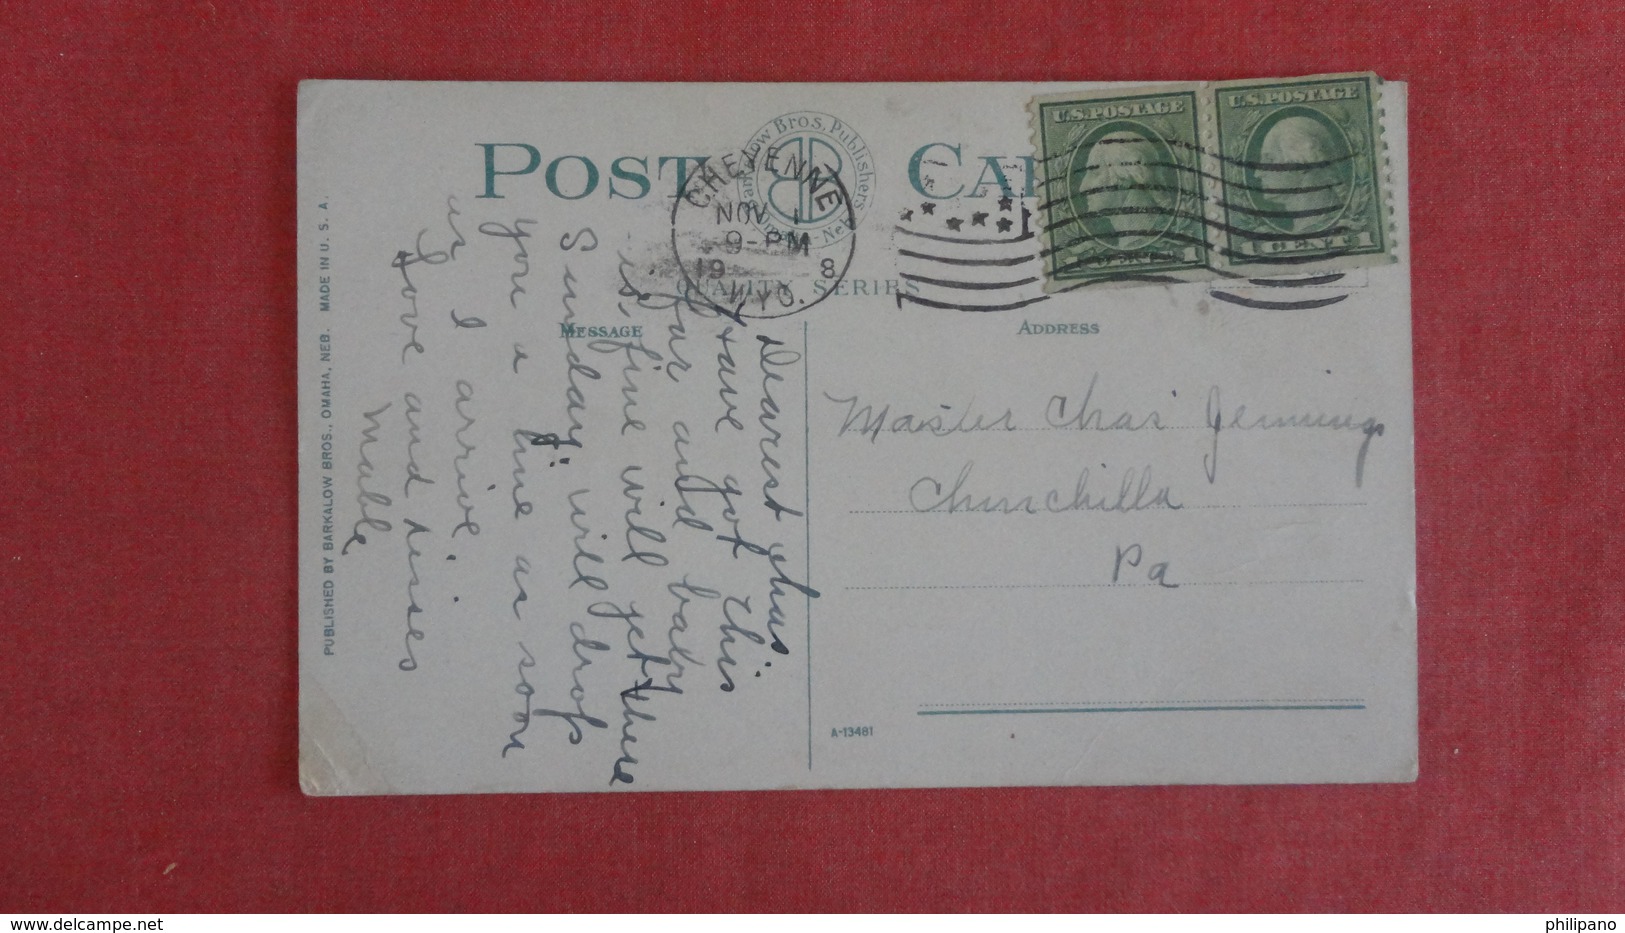 POST CARD
Barkalow Bros. Publishers
Omaha - Neb.
QUALITY SERIES
CHEYENNE
NOV 1
9-PM
19 8
WYO.
U.S. POSTAGE
1 CENT 1
U.S. POSTAGE
1 CENT 1
MESSAGE
ADDRESS
Dearest Chas.
Have got this
far and baby
is fine will get there
Sunday will drop
you a line as soon
as I arrive.
Love and kisses
Mable
Master Chas Jennings
Chinchilla
Pa
A-13481
PUBLISHED BY BARKALOW BROS., OMAHA, NEB. MADE IN U. S. A.
philipano